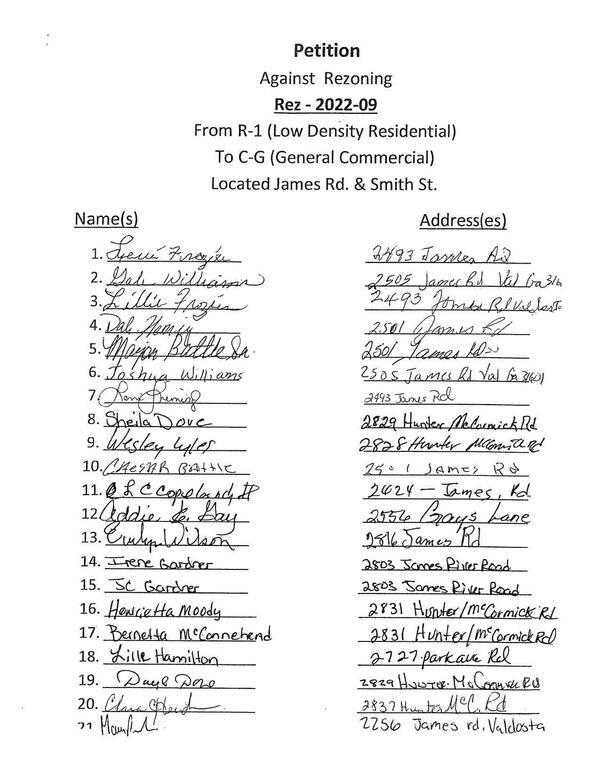 Petition
Against Rezoning
Rez - 2022-09
From R-1 (Low Density Residential)
To C-G (General Commercial)
Located James Rd. & Smith St.
Name(s) Address(es)
1. Frazier 2493 James Rd
2. Gale Williams 2505 James Rd Val Ga 316
3. Lillie Frazier 2493 James Rd
4. Dale 2501 James Rd
5. Marion Battle Sr. 2501 James Rd
6. Joshua Williams 2505 James Rd Val Ga 31601
7. 2493 James Rd
8. Sheila Dove 2829 Hunter McCormick Rd
9. Wesley Lyles 2828 Hunter
10. BATTLE JAMES Rd
11. 2624 - James, Rd
12. Addie E. Gay 2556 Grays Lane
13. Wilson 2816 James Rd
14. Irene Gardner 2803 James River Road
15. JC Gardner 2803 James River Road
16. Henrietta Moody 2831 Hunter/McCormick Rd
17. Bernetta McConnehead 2831 Hunter/McCormick Rd
18. Lille Hamilton 2727 park ave Rd
19. 2829 Hunter McCormick Rd
20. 2837 Hunter McC. Rd
21. 2256 James rd, Valdosta